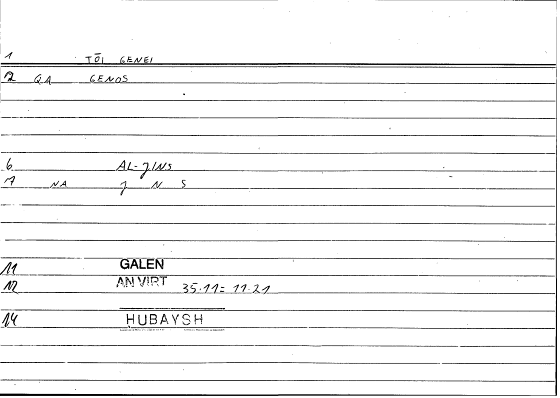 1 TŌI GENEI
2 QA GENOS
6 AL-JINS
7 NA J N S
11 GALEN
12 AN VIRT 35.11= 11.21
14 HUBAYSH